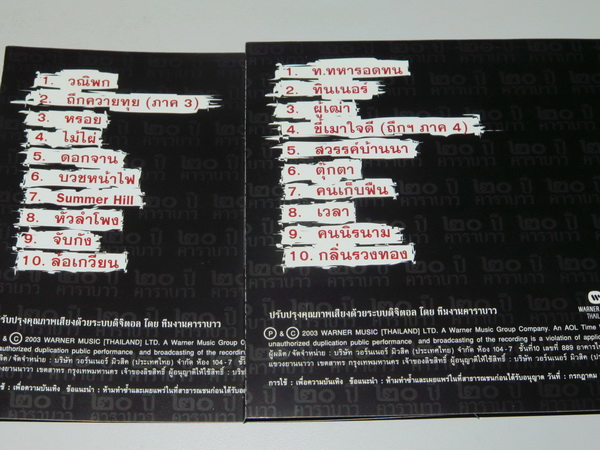 1. วณิพก
2. ถึกควายทุย (ภาค 3)
3. หรอย
4. ไม้ไผ่
5. ดอกจาน
6. บวชหน้าไฟ
7. Summer Hill
8. หัวลำโพง
9. จับกัง
10. ล้อเกวียน
ปรับปรุงคุณภาพเสียงด้วยระบบดิจิตอล โดย ทีมงานคาราบาว
P & C 2003 WARNER MUSIC [THAILAND] LTD. A Warner Music Group C
unauthorized duplication public performance and broadcasting of the recording
ผลิต/จัดจำหน่าย : บริษัท วอร์นเนอร์ มิวสิค (ประเทศไทย) จำกัด ห้อง 104-7
แขวงยานนาวา เขตสาทร กรุงเทพมหานคร เจ้าของลิขสิทธิ์ ผู้อนุญาติให้ใช้สิทธิ์ : บริษั
ารใช้ : เพื่อความบันเทิง ข้อแนะนำ : ห้ามทำซ้ำและเผยแพร่ในที่สาธารณชนก่อนได้รับอนุ
1. ท.ทหารอดทน
2. ทินเนอร์
3. ผู้เฒ่า
4. ขี้เมาใจดี (ถึกฯ ภาค 4)
5. สวรรค์บ้านนา
6. ตุ๊กตา
7. คนเก็บฟืน
8. เวลา
9. คนนิรนาม
10. กลิ่นรวงทอง
ปรับปรุงคุณภาพเสียงด้วยระบบดิจิตอล โดย ทีมงานคาราบาว
WARNER
THAIL
P & C 2003 WARNER MUSIC [THAILAND] LTD. A Warner Music Group Company. An AOL Time
unauthorized duplication public performance and broadcasting of the recording is a violation of applica
ผู้ผลิต/จัดจำหน่าย : บริษัท วอร์นเนอร์ มิวสิค (ประเทศไทย) จำกัด ห้อง 104-7 ชั้นที่10 เลขที่ 889 อาคารไท
แขวงยานนาวา เขตสาทร กรุงเทพมหานคร เจ้าของลิขสิทธิ์ ผู้อนุญาติให้ใช้สิทธิ์ : บริษัท วอร์นเนอร์ มิวสิค (ประเ
การใช้ : เพื่อความบันเทิง ข้อแนะนำ : ห้ามทำซ้ำและเผยแพร่ในที่สาธารณชนก่อนได้รับอนุญาต วันที่ : กรกฎาคม